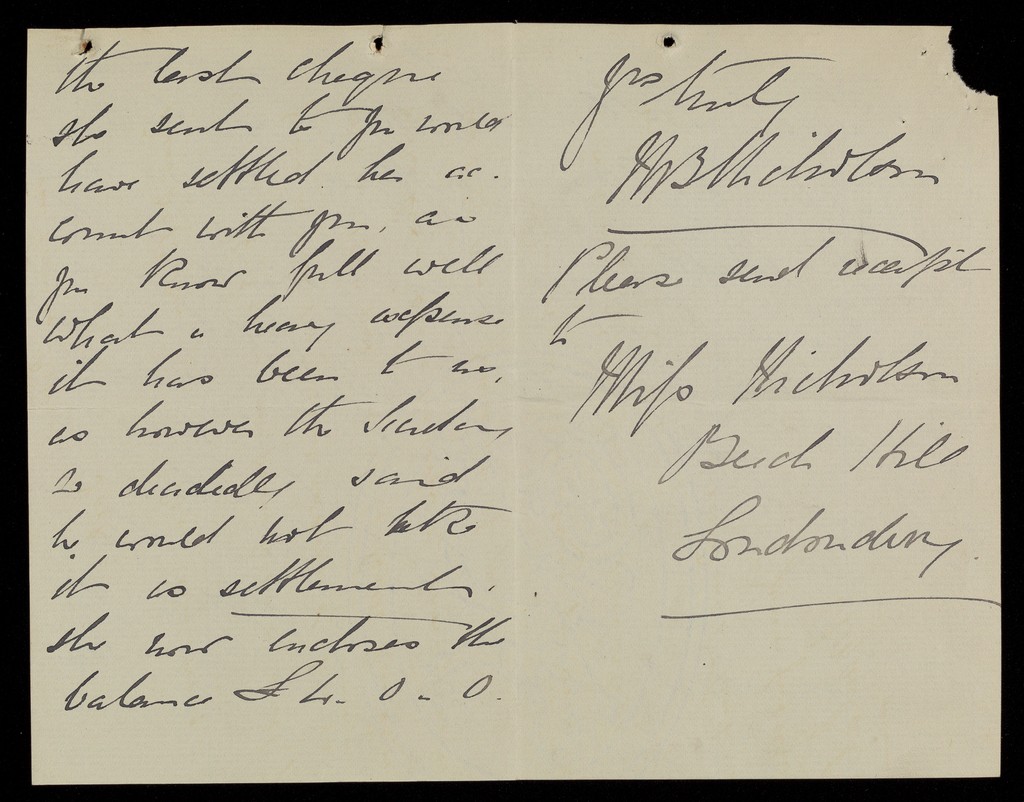 the last cheque
she sent to you would
have settled her ac-
count with you, as
you know full well
what a heavy expense
it has been to us,
as however the Secretary
so decidedly said
he would not take
it as settlement.
she now encloses the
balance £ 4. 0. 0.
yrs truly
Nicholson
Please send receipt
to
Miss Nicholson
Beech Hill
Londonderry